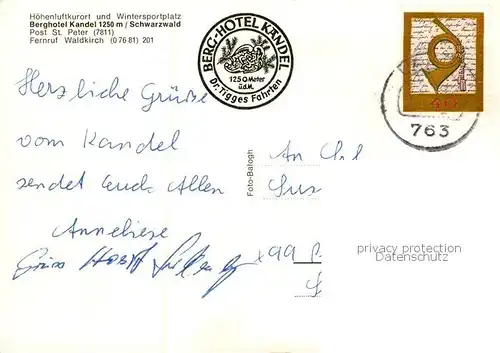 Höhenluftkurort und Wintersportplatz
Berghotel Kandel 1250 m / Schwarzwald
Post St. Peter (7811)
Fernruf Waldkirch (0 76 81) 201
BERG-HOTEL KANDEL
1250 Meter
ü.d.M.
Dr. Tigges Fahrten
40
763
Herzliche Grüße
vom Kandel
sendet Euch Allen
Anneliese
Gruss Horst
An
Foto-Balogh
privacy protection
Datenschutz